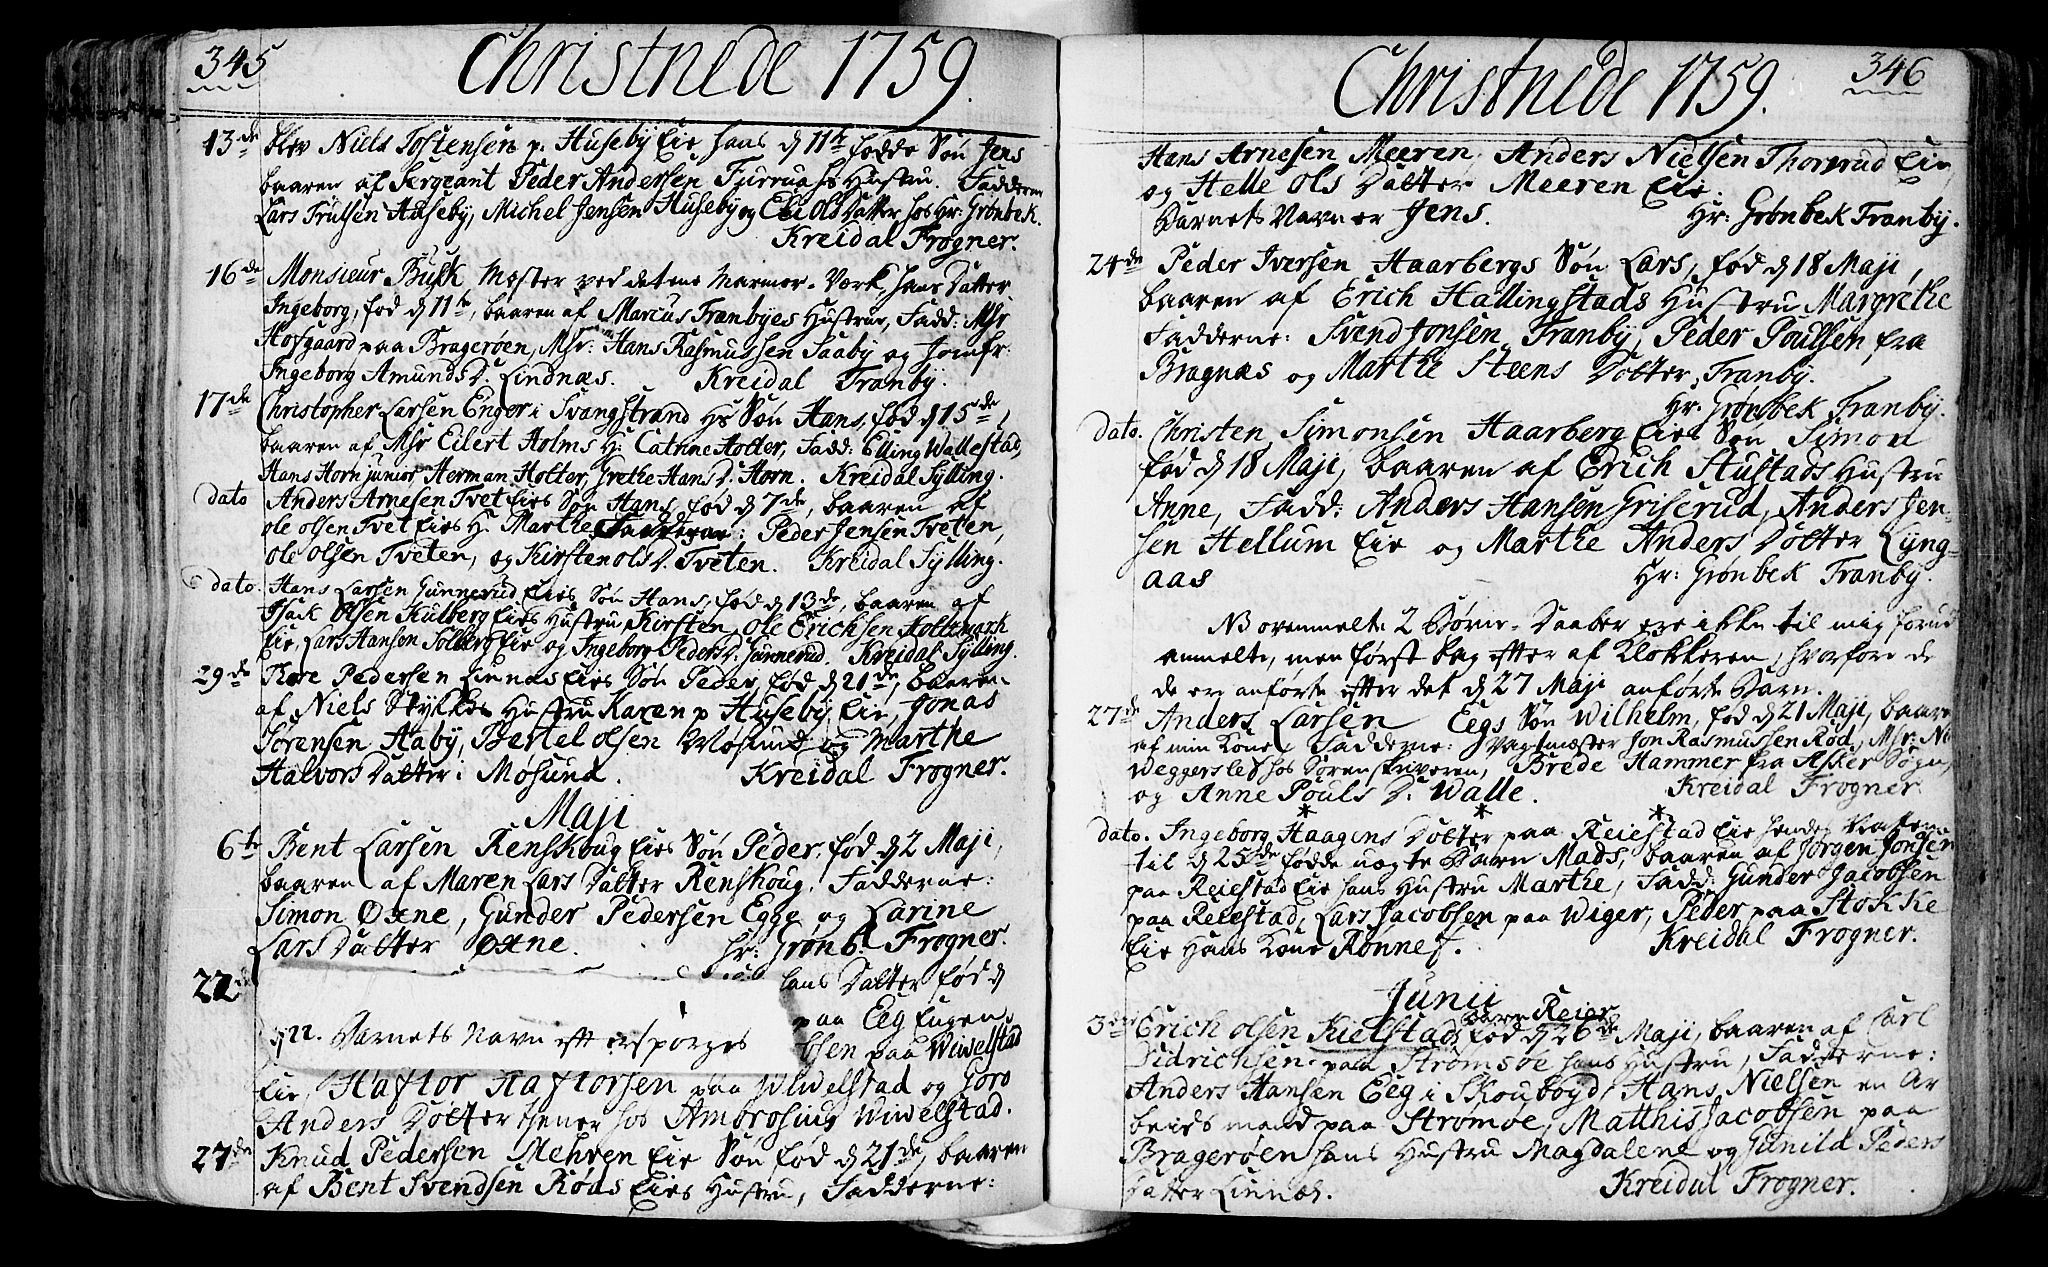 345
Christnede 1759.
13de blev Niels Tostensen p. Huseby Eie hans d 11te fødde Søn Jens
baaren af Sergeant Peder Andersen Furruahs Hustru. Fadderne
Lars Trulsen Huseby, Michel Jensen Huseby og Eli Ols Datter hos Hr: Grønbek.
Kreidal Frogner.
16de Monsieur Busk Mæster ved dettene Marmor-Værk, hans Datter
Ingeborg, fød d 11te, baaren af Marcus Tranbyes Hustrue, Fadd: Msr
Hofgaard paa Bragerøen, Msr: Hans Rasmussen Saaby og Jomfr:
Ingeborg Amunds D. Lindnæs. Kreidal Tranby.
17de Christopher Larsen Enger i Svangstrand Hs Søn Hans, fød d 15de,
baaren af Msr Eilert Holms H: Catrine Holter, Fadd: Elling Wallestad,
Hans Horn junior, Herman Holter, Grethe Hans D. Horn. Kreidal Sylling.
dato Anders Arnesen Tvet Eies Søn Hans, fød d 7de, baaren af
Ole Olsen Tvet Eies H: Marthe Fadderne: Peder Jensen Tveten,
Ole Olsen Tveten, og Kirsten Ols D. Tveten. Kreidal Sylling.
dato. Hans Larsen Gunnerud Eies Søn Hans, fød d 13de, baaren af
Isack Olsen Kulberg Eies Hustru Kirsten, Ole Erichsen Holtemark
Eie, Lars Hansen Solberg Eie og Ingeborg Peders D. Gunnerud. Kreidal Sylling.
29de Thore Pedersen Linnes Eies Søn Peder, fød d 21de, baaren
af Niels Hustru Karen p Huseby Eie, Jonas
Sørensen Aaby, Bertel Olsen Møsund og Marthe
Halvors Datter i Møsund. Kreidal Frogner.
Maji
6te Bent Larsen Renskoug Eies Søn Peder, fød d 2 Maji,
baaren af Maren Lars Datter Renskoug. Fadderne:
Simon Oxne, Gunder Pedersen Egge og Larine
Lars Datter Oxne. Hr: Grønb. Frogner.
22de hans Datter fød d
d 22. Barnets Navn efterspørges paa Eeg Eugen.
Olsen paa Wiwelstad
Eie, Haftor Haftorsen paa Wiwelstad og Goro
Anders Datter tiener hos Ambrosius Wiwelstad.
27de Knud Pedersen Mehren Eie Søn fød d 21de, baaren
af Bent Svendsen Røds Eies Hustru, Fadderne:
346
Christnede 1759.
Hans Arnesen Meeren, Anders Nielsen Thorsrud Eie
og Helle Ols Datter Meeren Eie.
Barnets Navn er Jens. Hr: Grønbek Tranby.
24de Peder Iversen Haarbergs Søn Lars, fød d 18 Maji,
baaren af Erich Hallingstads Hustru Margrethe
Fadderne: Svend Jonsen Tranby, Peder Poulsen fra
Bragnæs og Marthe Steens Dotter Tranby.
Hr: Grønbek Tranby.
dato. Christen Simonsen Haarberg Eies Søn Simon
fød d 18 Maji, baaren af Erich Stustads Hustru
Anne, Fadd: Anders Hansen Griserud, Anders Jen-
sen Hellum Eie og Marthe Anders Dotter Lyng-
aas Hr: Grønbek Tranby.
NB ovenmelte 2 Børns Daaber ere ikke til mig forud
anmelte, men først bag efter af Klokkeren, hvorfore de
de er anførte efter det d 27 Maji anførte Barn.
27de Anders Larsen Eegs Søn Wilhelm, fød d 21 Maji, baare
af min Kone, Fadderne: Vagtmester Jon Rasmussen Rød, Msr: Ni
Weggersleb hos Sørenskriveren, Brede Hammer fra Asker Sogn,
og Anne Pouls D. Walle. Kreidal Frogner.
dato. Ingeborg Haagens Dotter paa Reiestad Eie hendes
til d 25de fødde uægte Barn Mads, baaren af Jørgen Jonsen
paa Reiestad Eie hans Hustru Marthe, Fadd: Gunder Jacobsen
paa Reiestad, Lars Jacobsen paa Wiger, Peder paa Stokke
Eie Hans Kone Rønnef. Kreidal Frogner.
Junii
3de Erich Olsen Kielstads Barn Reier fød d 26de Maji, baaren af Carl
Didrichsen paa Strømsøe hans Hustru, Fadderne:
Anders Hansen Eeg i Skouboyd, Hans Nielsen en Ar
beids mand paa Strømøe, Matthis Jacobsen paa
Bragerøen hans Hustru Magdalene og Gunild Peders
Datter Linnes. Kreidal Frogner.